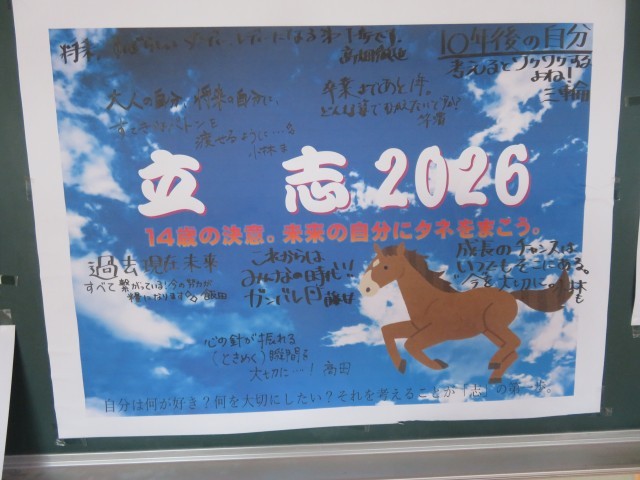 将来
10年後の自分
考えるとワクワクするよね!
三輪
大人の自分、将来の自分に、
すてきなバトンを
渡せるように…
小林
卒業まであと1年。
立志2026
14歳の決意。未来の自分にタネをまこう。
過去 現在 未来
すべて繋がっている!今の努力が
糧になります。飯田
これからは
みんなの時代!!
ガンバレ
成長のチャンスは
いつでもそこにある。
今を大切に。
心の針が振れる
(ときめく)瞬間を
大切に…!高田
自分は何が好き?何を大切にしたい?それを考えることが「志」の第一歩。